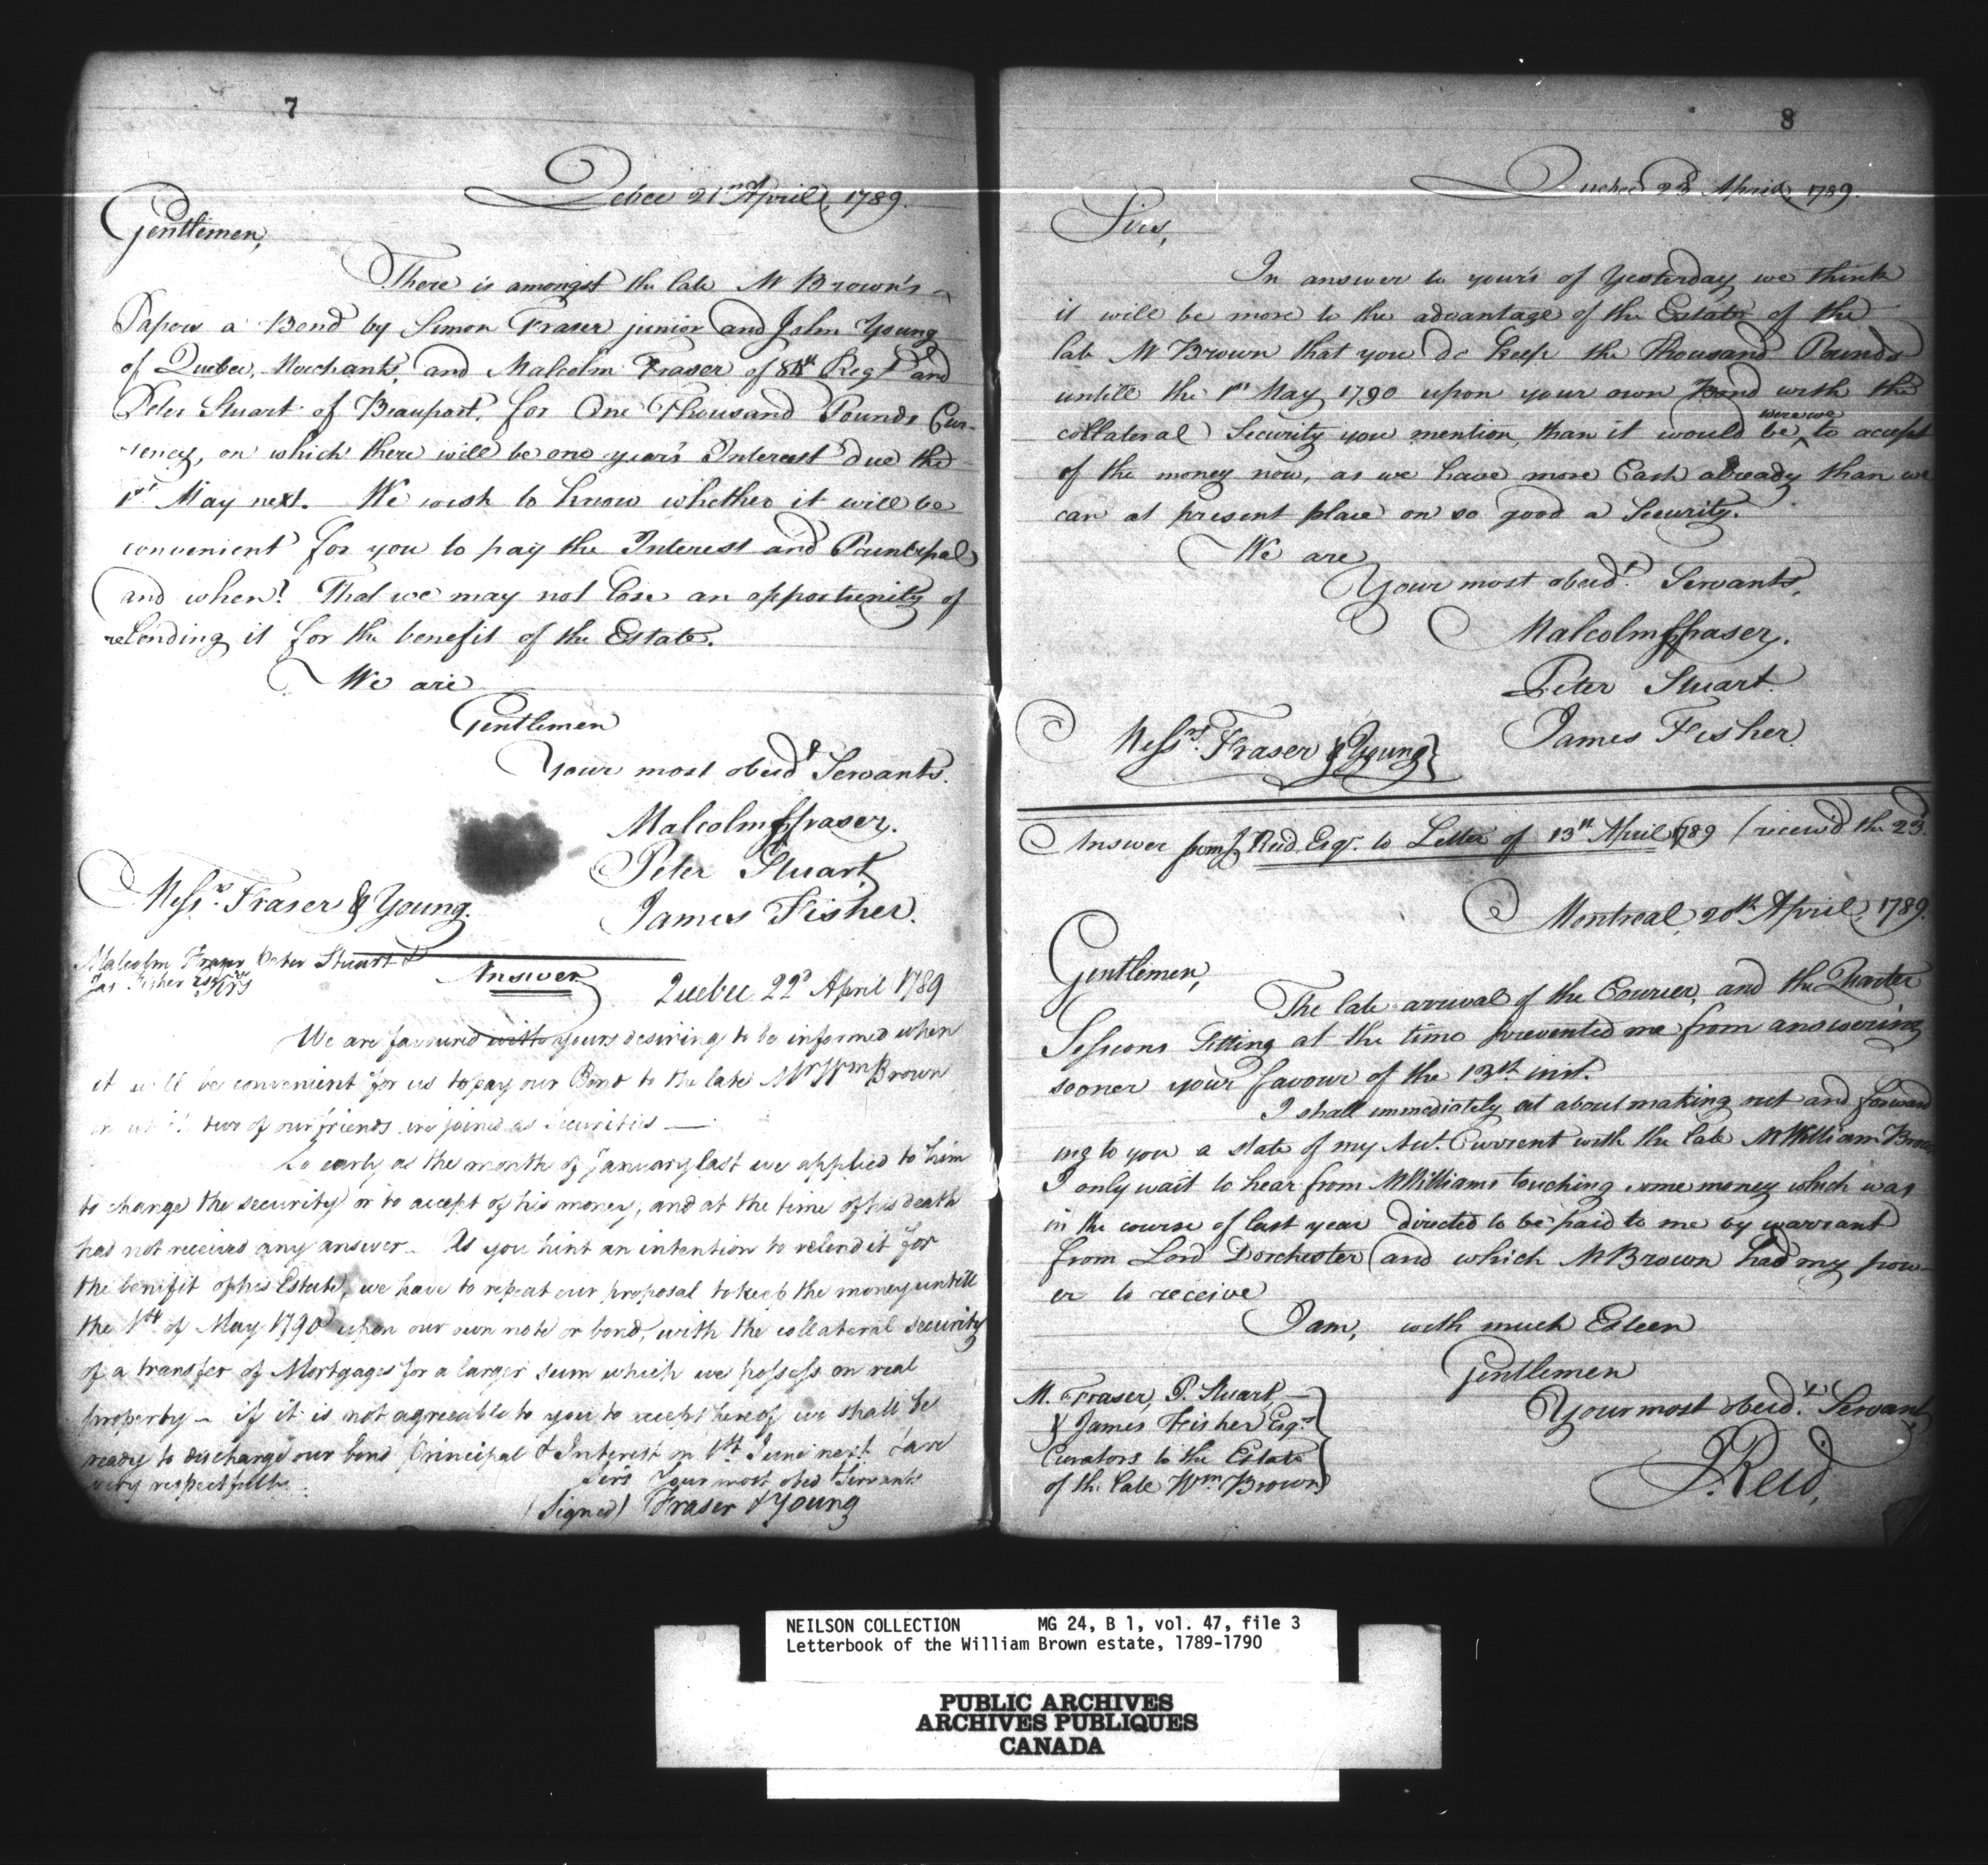 7
Qebec 21st April, 1789.
Gentlemen,
There is amongst the late Mr Brown's
Papers a Bond by Simon Fraser junior and John Young
of Quebec, Merchants, and Malcolm Fraser of 84th Regt and
Peter Stuart of Beauport, for One Thousand Pounds Cur-
rency, on which there will be one year's Interest due the
1st May next. We wish to know whether it will be
convenient for you to pay the Interest and Principal
and when? That we may not lose an opportunity of
relending it for the benefit of the Estate.
We are
Gentlemen
Your most obedt Servants.
Malcolm Fraser.
Peter Stuart
James Fisher.
Messrs. Fraser & Young.
Malcolm Fraser Peter Stuart &
Jas. Fisher Esqrs
Sirs
Answer.
Quebec 22d April 1789
We are favoured with yours desiring to be informed when
it will be convenient for us to pay our Bond to the late Mr Wm Brown
in which two of our friends are joined as Securities —
So early as the month of January last we applied to him
to change the security or to accept of his money, and at the time of his death
had not received any answer — As you hint an intention to relend it for
the benifit of his Estate, we have to repeat our proposal to keep the money untill
the 1st of May 1790 upon our own note or bond, with the collateral security
of a transfer of Mortgages for a larger sum which we possess on real
property — if it is not agreeable to you to accept hereof we shall be
ready to discharge our bond Principal & Interest on 1st June next & are
very respectfully
Sirs Your most obed Servants
(Signed) Fraser & Young
8
Quebec 23d April, 1789.
Sirs,
In answer to your's of Yesterday we think
it will be more to the advantage of the Estate of the
late Mr Brown that you do keep the Thousand Pounds
untill the 1st May 1790 upon your own Bond with the
collateral Security you mention, than it would be were we to accept
of the money now, as we have more Cash already than we
can at present place on so good a Security.
We are
Your most obedt. Servants,
Malcolm Fraser.
Peter Stuart.
James Fisher.
Messrs. Fraser & Young
Answer from J. Reid, Esqr. to Letter of 13th April 1789 (receiv'd the 23d.
Montreal, 20th April, 1789.
Gentlemen,
The late arrival of the Courier, and the Quarter
Sessions Sitting at the time prevented me from answering
sooner your favour of the 13th inst.
I shall immediately set about making out and forward
ing to you a state of my Acct. Current with the late Mr William Brown
I only wait to hear from Mr Williams touching some money which was
in the course of last year directed to be paid to me by warrant
from Lord Dorchester and which Mr Brown had my pow-
er to receive
I am, with much Esteem
Gentlemen
Your most obedt. Servant,
J. Reid,
M. Fraser, P. Stuart,
& James Fisher Esqrs
Curators to the Estate
of the late Wm. Brown
NEILSON COLLECTION MG 24, B 1, vol. 47, file 3
Letterbook of the William Brown estate, 1789-1790
PUBLIC ARCHIVES
ARCHIVES PUBLIQUES
CANADA